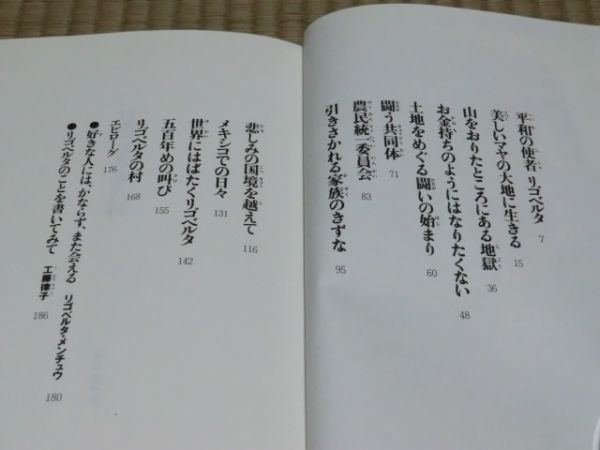 平和の使者 リゴベルタ 7
美しいマヤの大地に生きる 15
山をおりたところにある地獄 36
お金持ちのようにはなりたくない 48
土地をめぐる闘いの始まり 60
闘う共同体 71
農民統一委員会 83
引きさかれる家族のきずな 95
悲しみの国境を越えて 116
メキシコでの日々 131
世界にはばたくリゴベルタ 142
五百年めの叫び 155
リゴベルタの村 168
エピローグ 176
●好きな人には、かならず、また会える リゴベルタ・メンチュウ 180
●リゴベルタのことを書いてみて 工藤律子 186